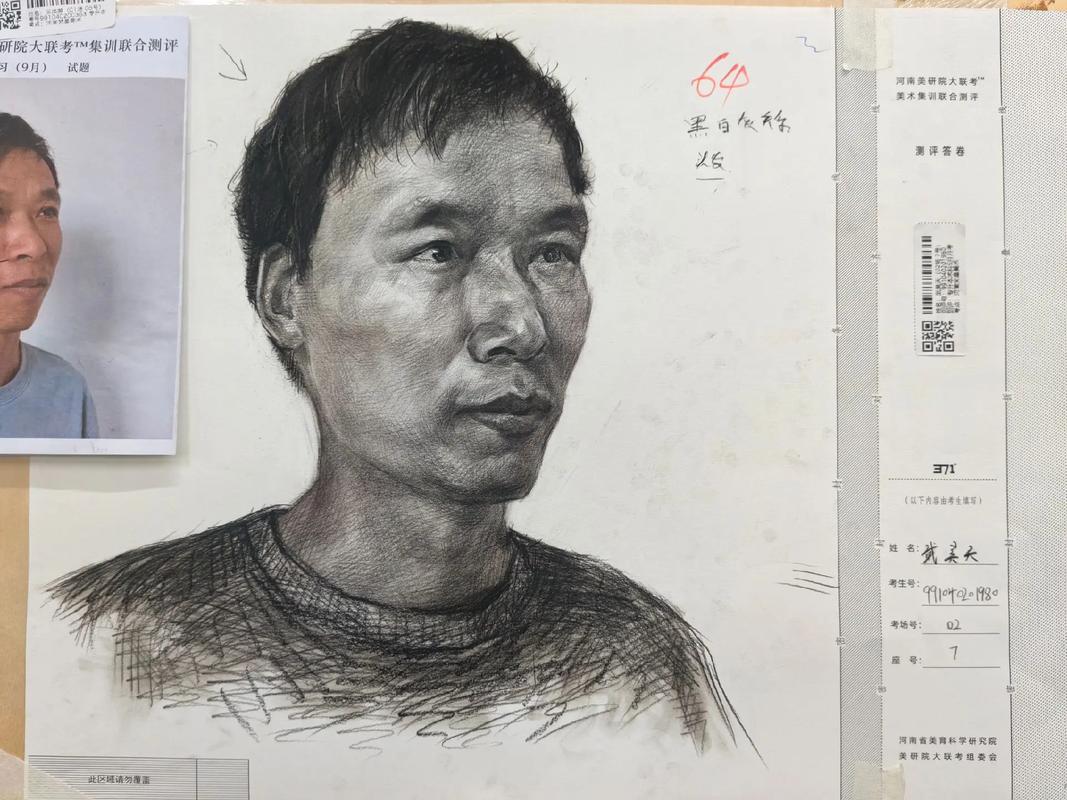 研院大联考™集训联合测评
习（9月） 试题
64
黑白灰关系
头发
河南美研院大联考™
美术集训联合测评
测评答卷
371
（以下内容由考生填写）
姓 名：武美天
考生号：991040201980
考场号：02
座 号：7
河南省美育科学研究院
美研院大联考组委会
此区域请勿覆盖